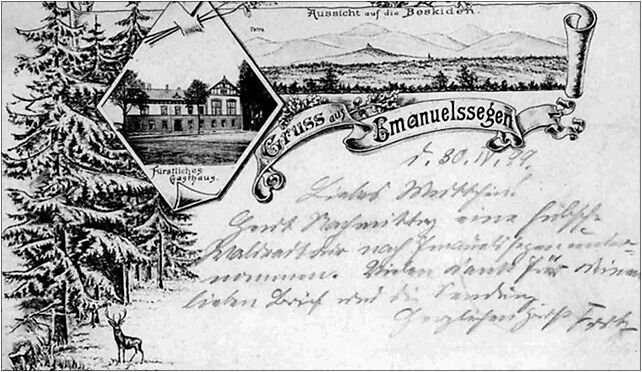 Aussicht auf die Beskiden.
Tatra.
Fürstliches
Gasthaus.
Gruss aus Emanuelssegen
d. 30. IV. 99.
Liebes
Heut Nachmittag eine hübsche
nach Emanuelssegen unter-
nommen. Vielen Dank für deinen
lieben Brief und die Sendung
Herzlichen Gruß